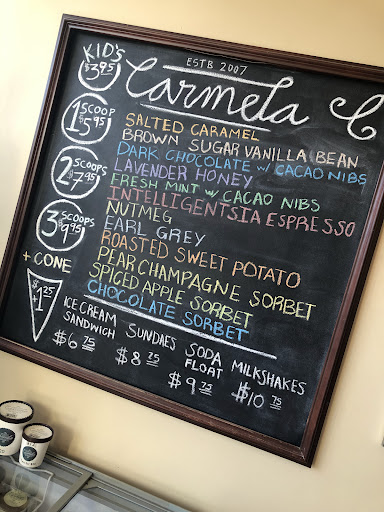 ESTB 2007
Carmela C
KID'S
$3.95
1 SCOOP
$5.95
2 SCOOPS
$7.95
3 SCOOPS
$9.95
+ CONE
$1.25
SALTED CARAMEL
BROWN SUGAR VANILLA BEAN
DARK CHOCOLATE w/ CACAO NIBS
LAVENDER HONEY
FRESH MINT w/ CACAO NIBS
INTELLIGENTSIA ESPRESSO
NUTMEG
EARL GREY
ROASTED SWEET POTATO
PEAR CHAMPAGNE SORBET
SPICED APPLE SORBET
CHOCOLATE SORBET
ICE CREAM
SANDWICH
$6 75
SUNDAES
$8 75
SODA
FLOAT
$9 75
MILKSHAKES
$10 75